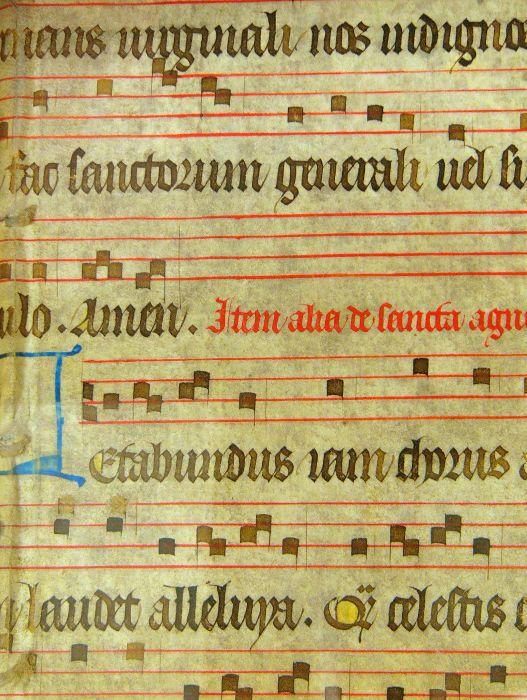 nicans uirginali nos indignos
fac sanctorum generali uel si
ulo. Amen. Item alia de sancta agn
Letabundus iam chorus
laudet alleluya. Qr celestis